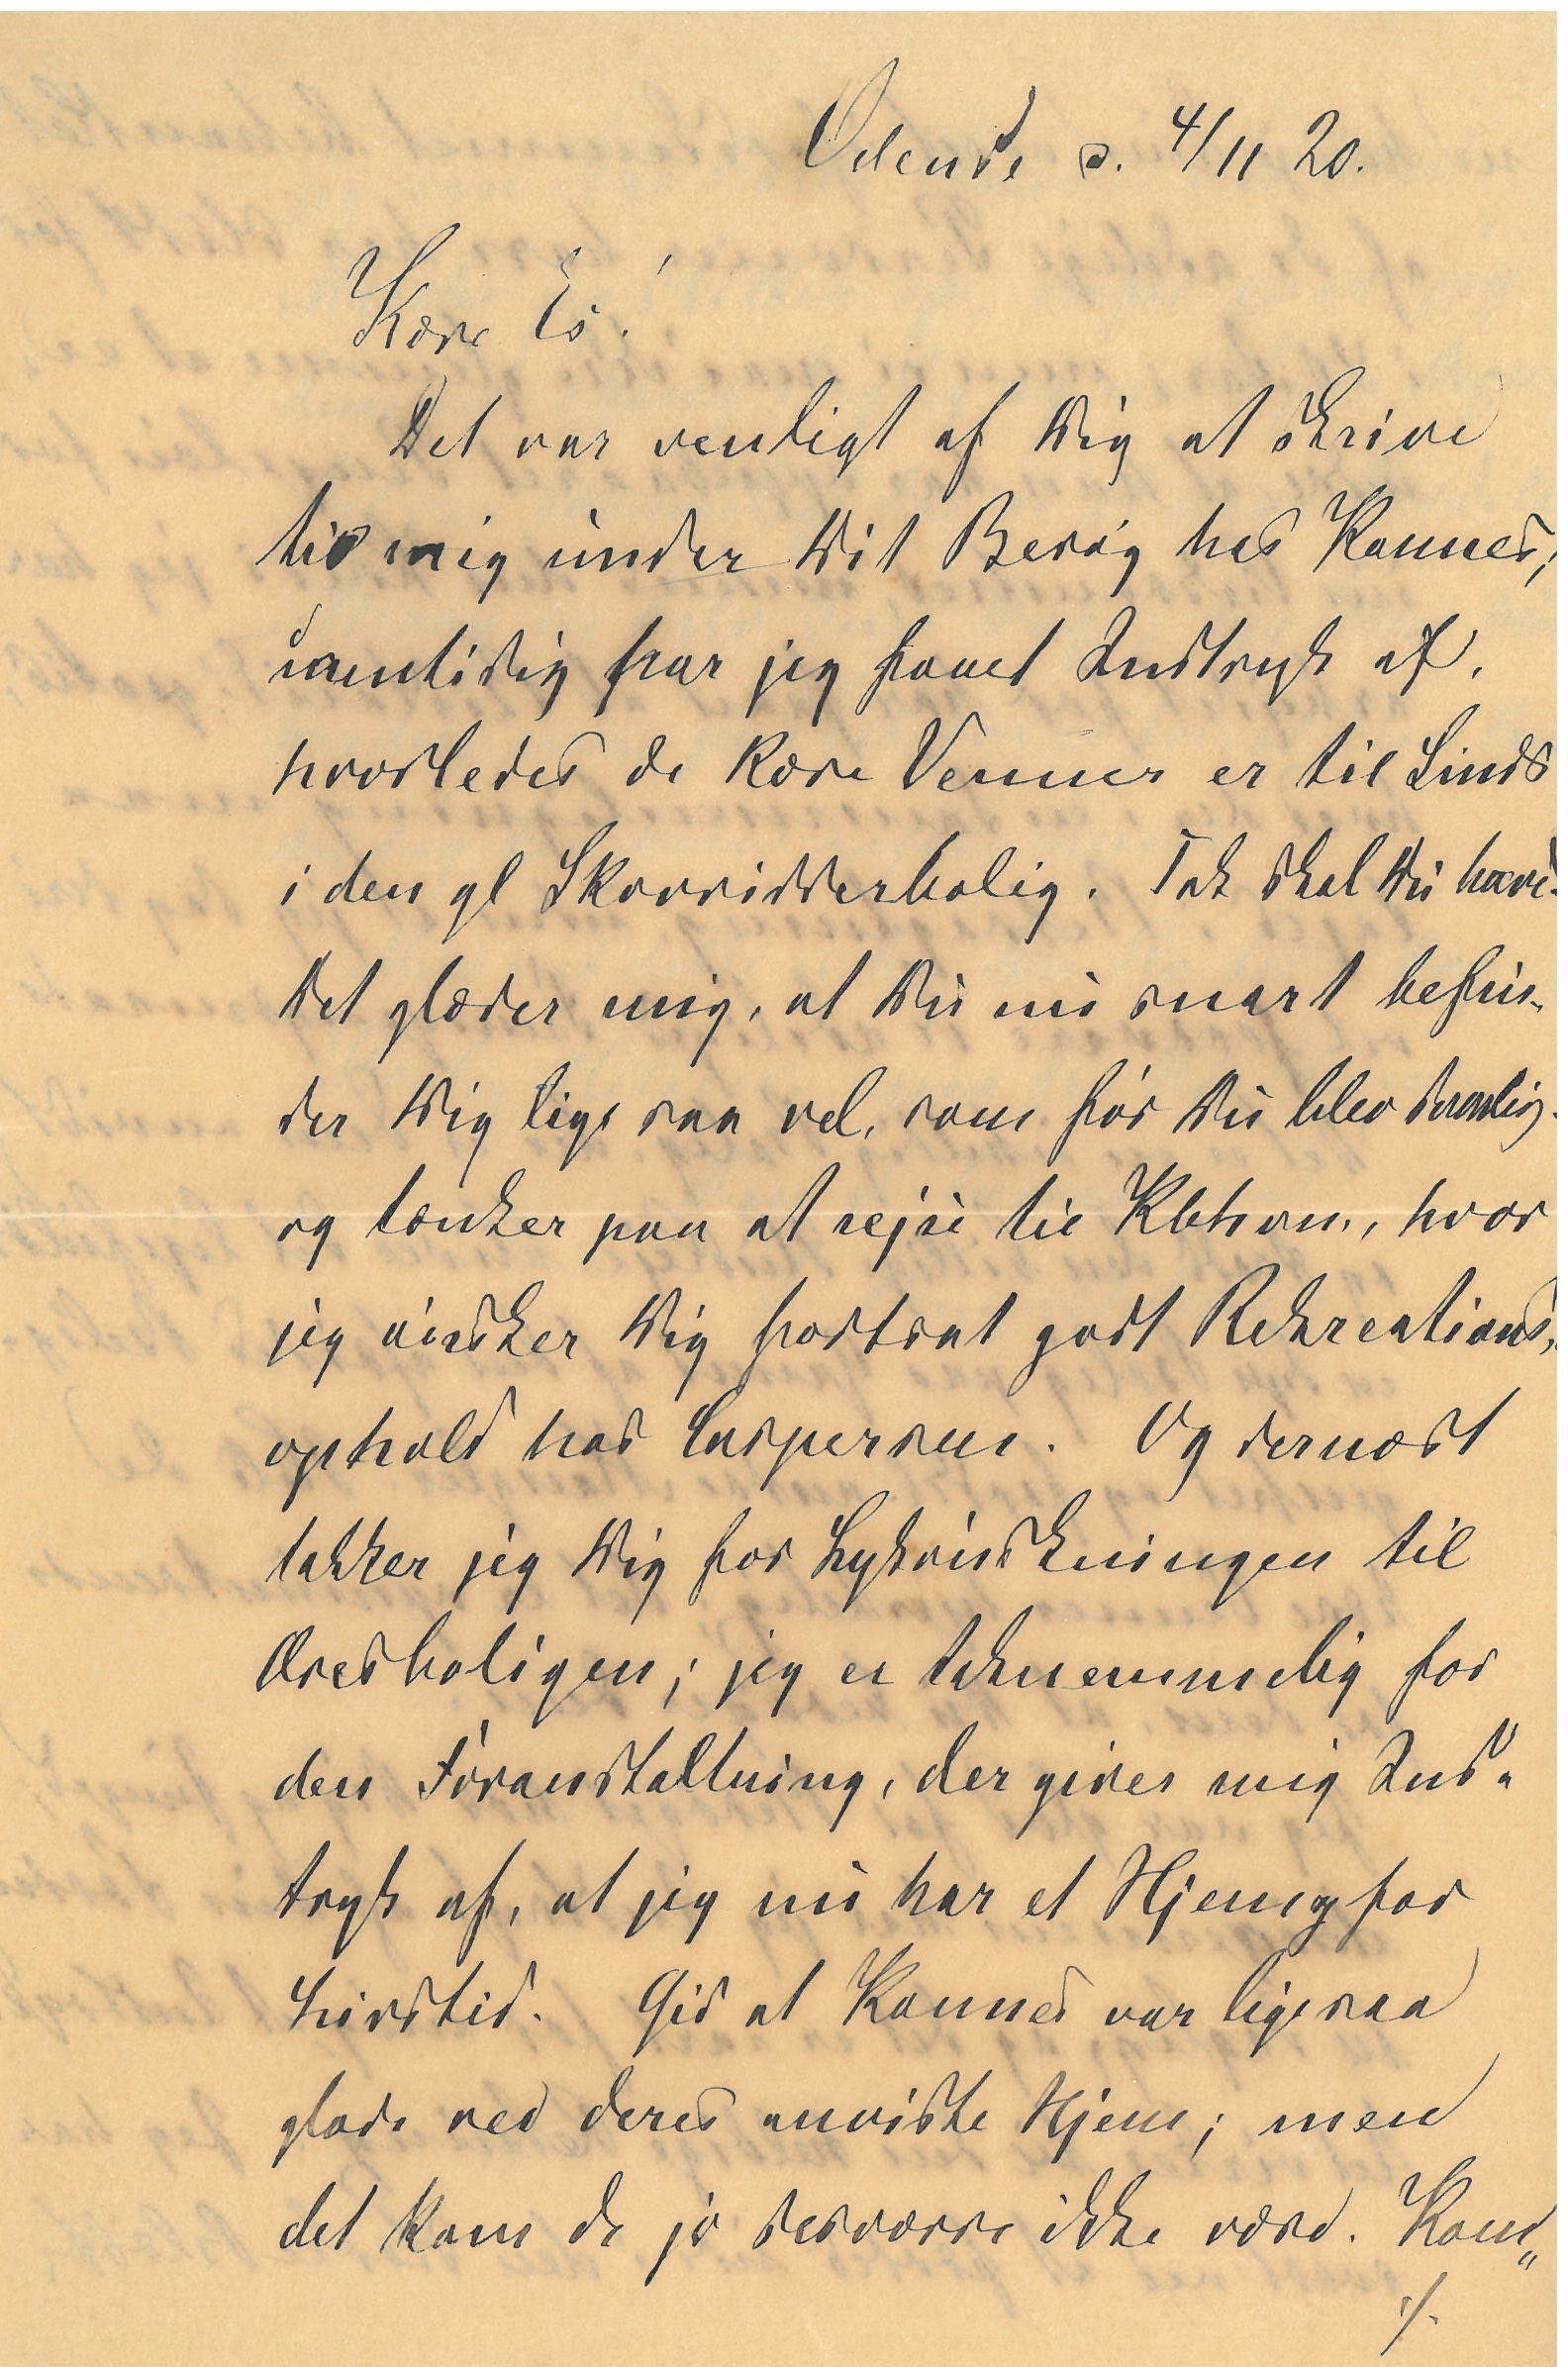 Odense d. 4/11 20.
Kære Es!
Det var venligt af Dig at skrive
til mig under Dit Besøg hos Hannes;
samtidig har jeg faaet Indtryk af,
hvorledes de kære Venner er til Sinds
i den gl Skovridderbolig. Tak skal Du have.
Det glæder mig, at Du nu snart befin-
der Dig lige saa vel, som før Du blev daarlig
og tænker paa at rejse til Kbhvn., hvor
jeg ønsker Dig fortsat godt Rekreations-
ophold hos Caspersen. Og dernæst
takker jeg Dig for Lykønskningen til
Æresboligen; jeg er taknemmelig for
den Foranstaltning, der giver mig Ind-
tryk af, at jeg nu har et Hjem for
Livstid. Gid at Hannes var ligesaa
glade ved deres anviste Hjem; men
det kan de jo desværre ikke være.
./.